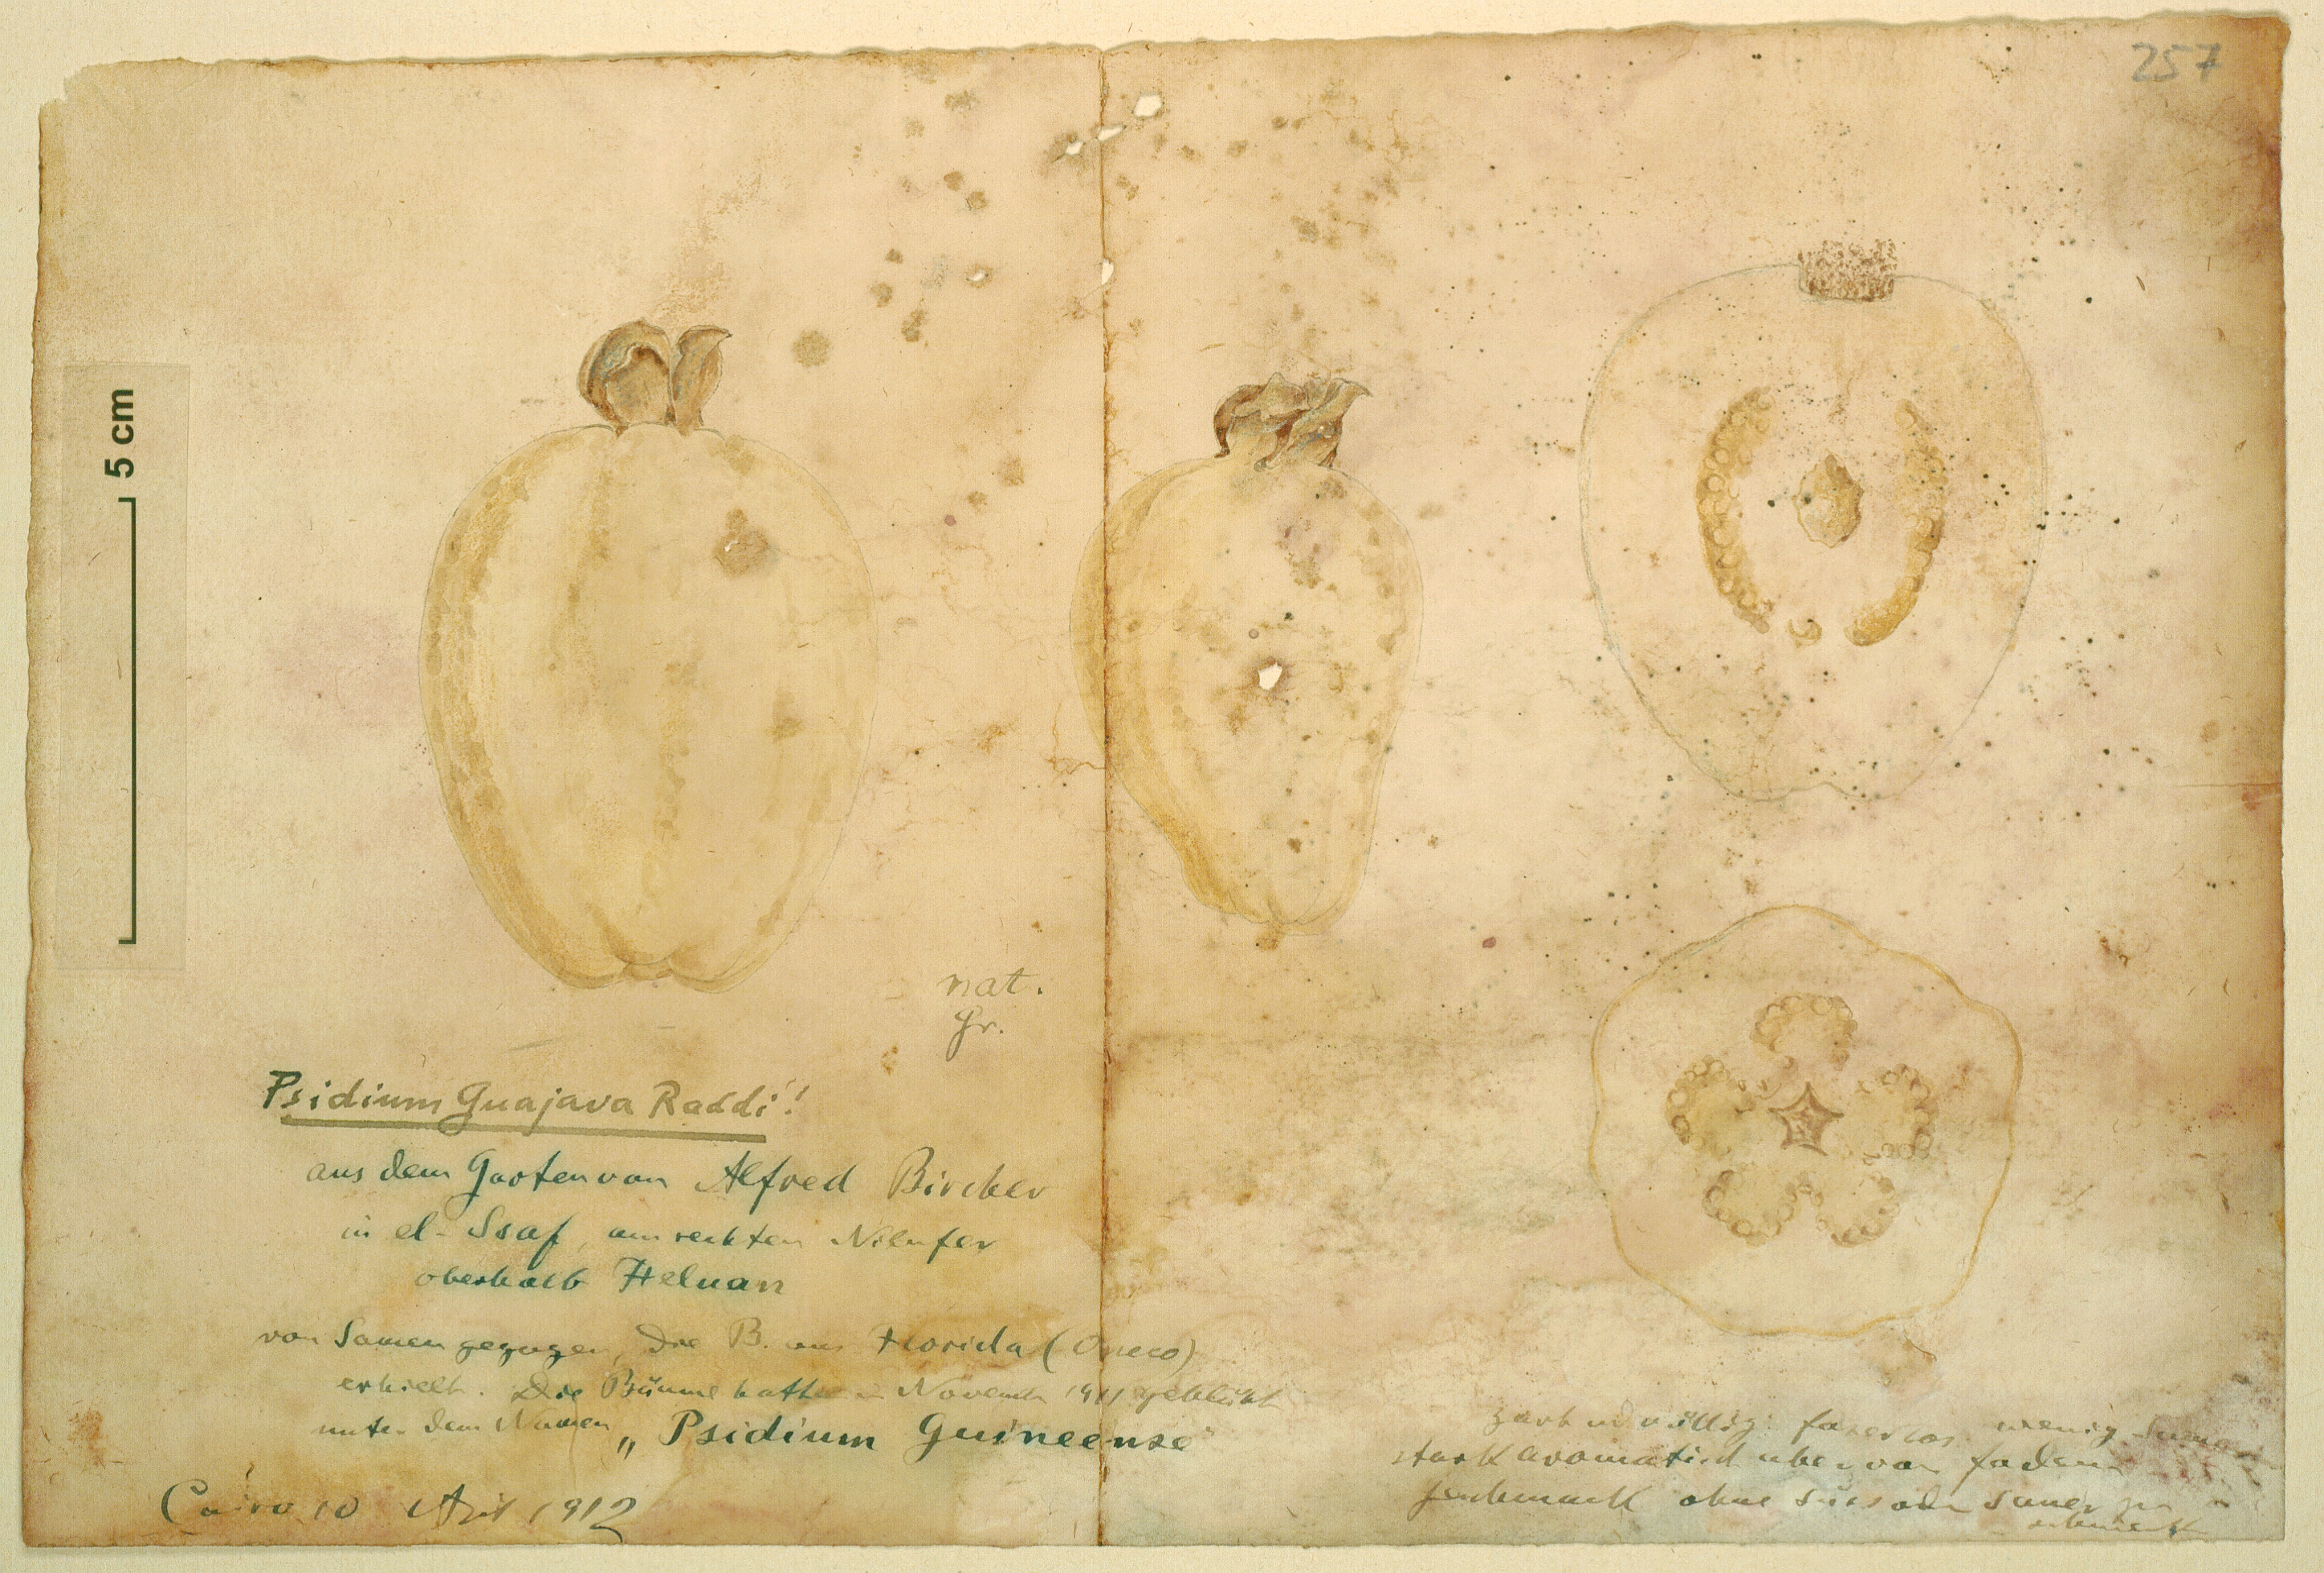 257
5 cm
nat.
gr.
Psidium Guajava Raddi!!
aus dem Garten von Alfred Bircher
in el-Ssaf, am rechten Nilufer
oberhalb Heluan
von Samen gezogen, die B. aus Florida (Oneco)
erhielt. Die Bäume hatten in November 1911 geblüht
unter dem Namen „Psidium Guineense"
Cairo 10 April 1912
zart und völlig faserlos wenig
stark aromatisch aber von fadem
Geschmack ohne süss oder sauer zu